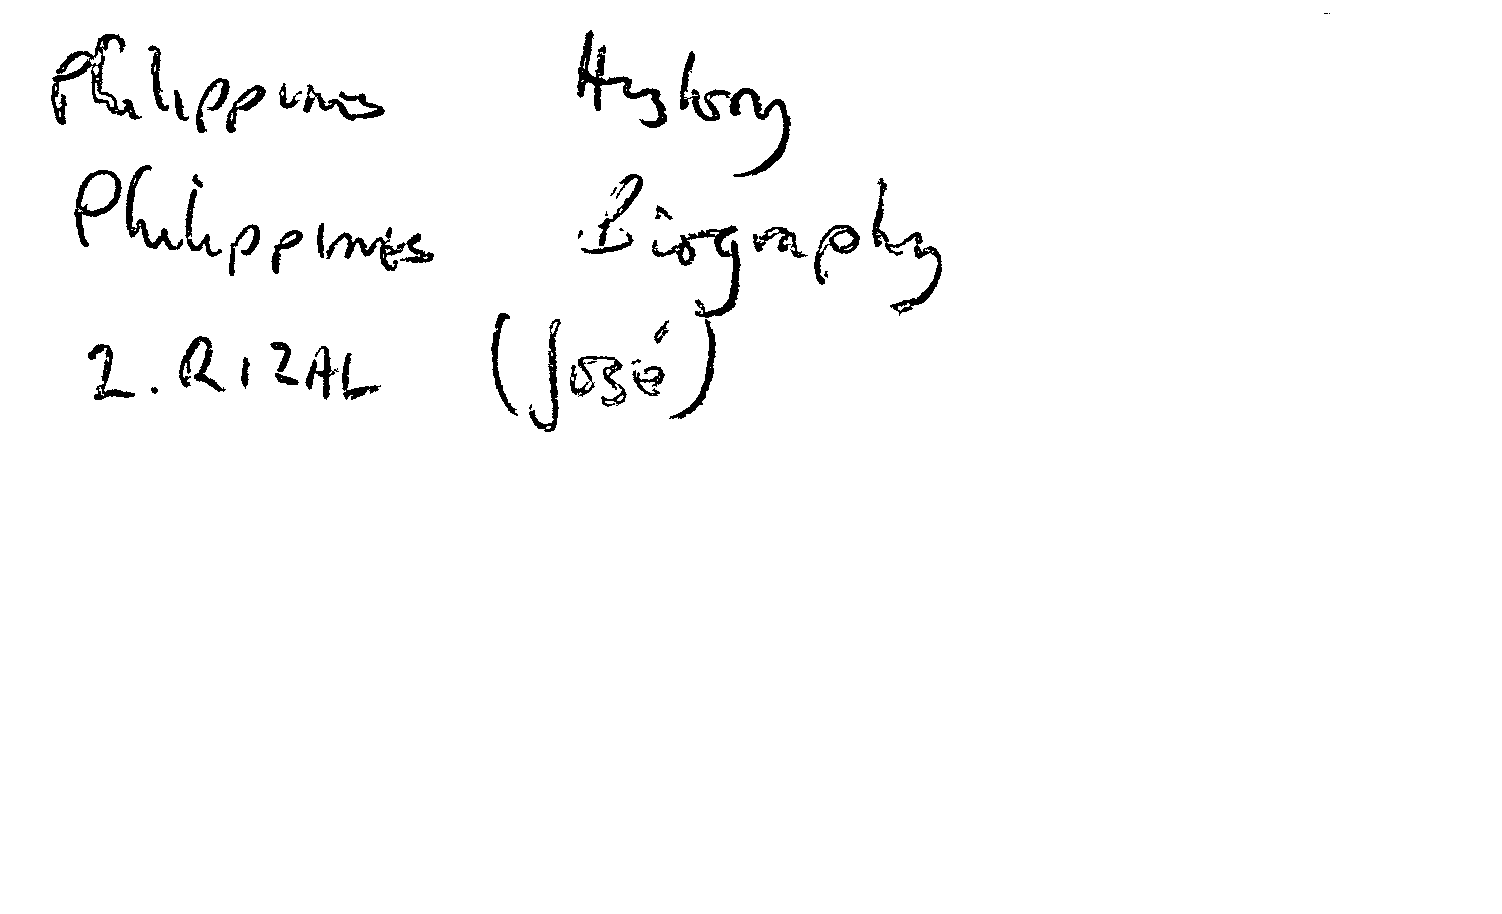 Philippines History
Philippines Biography
2. RIZAL (José)